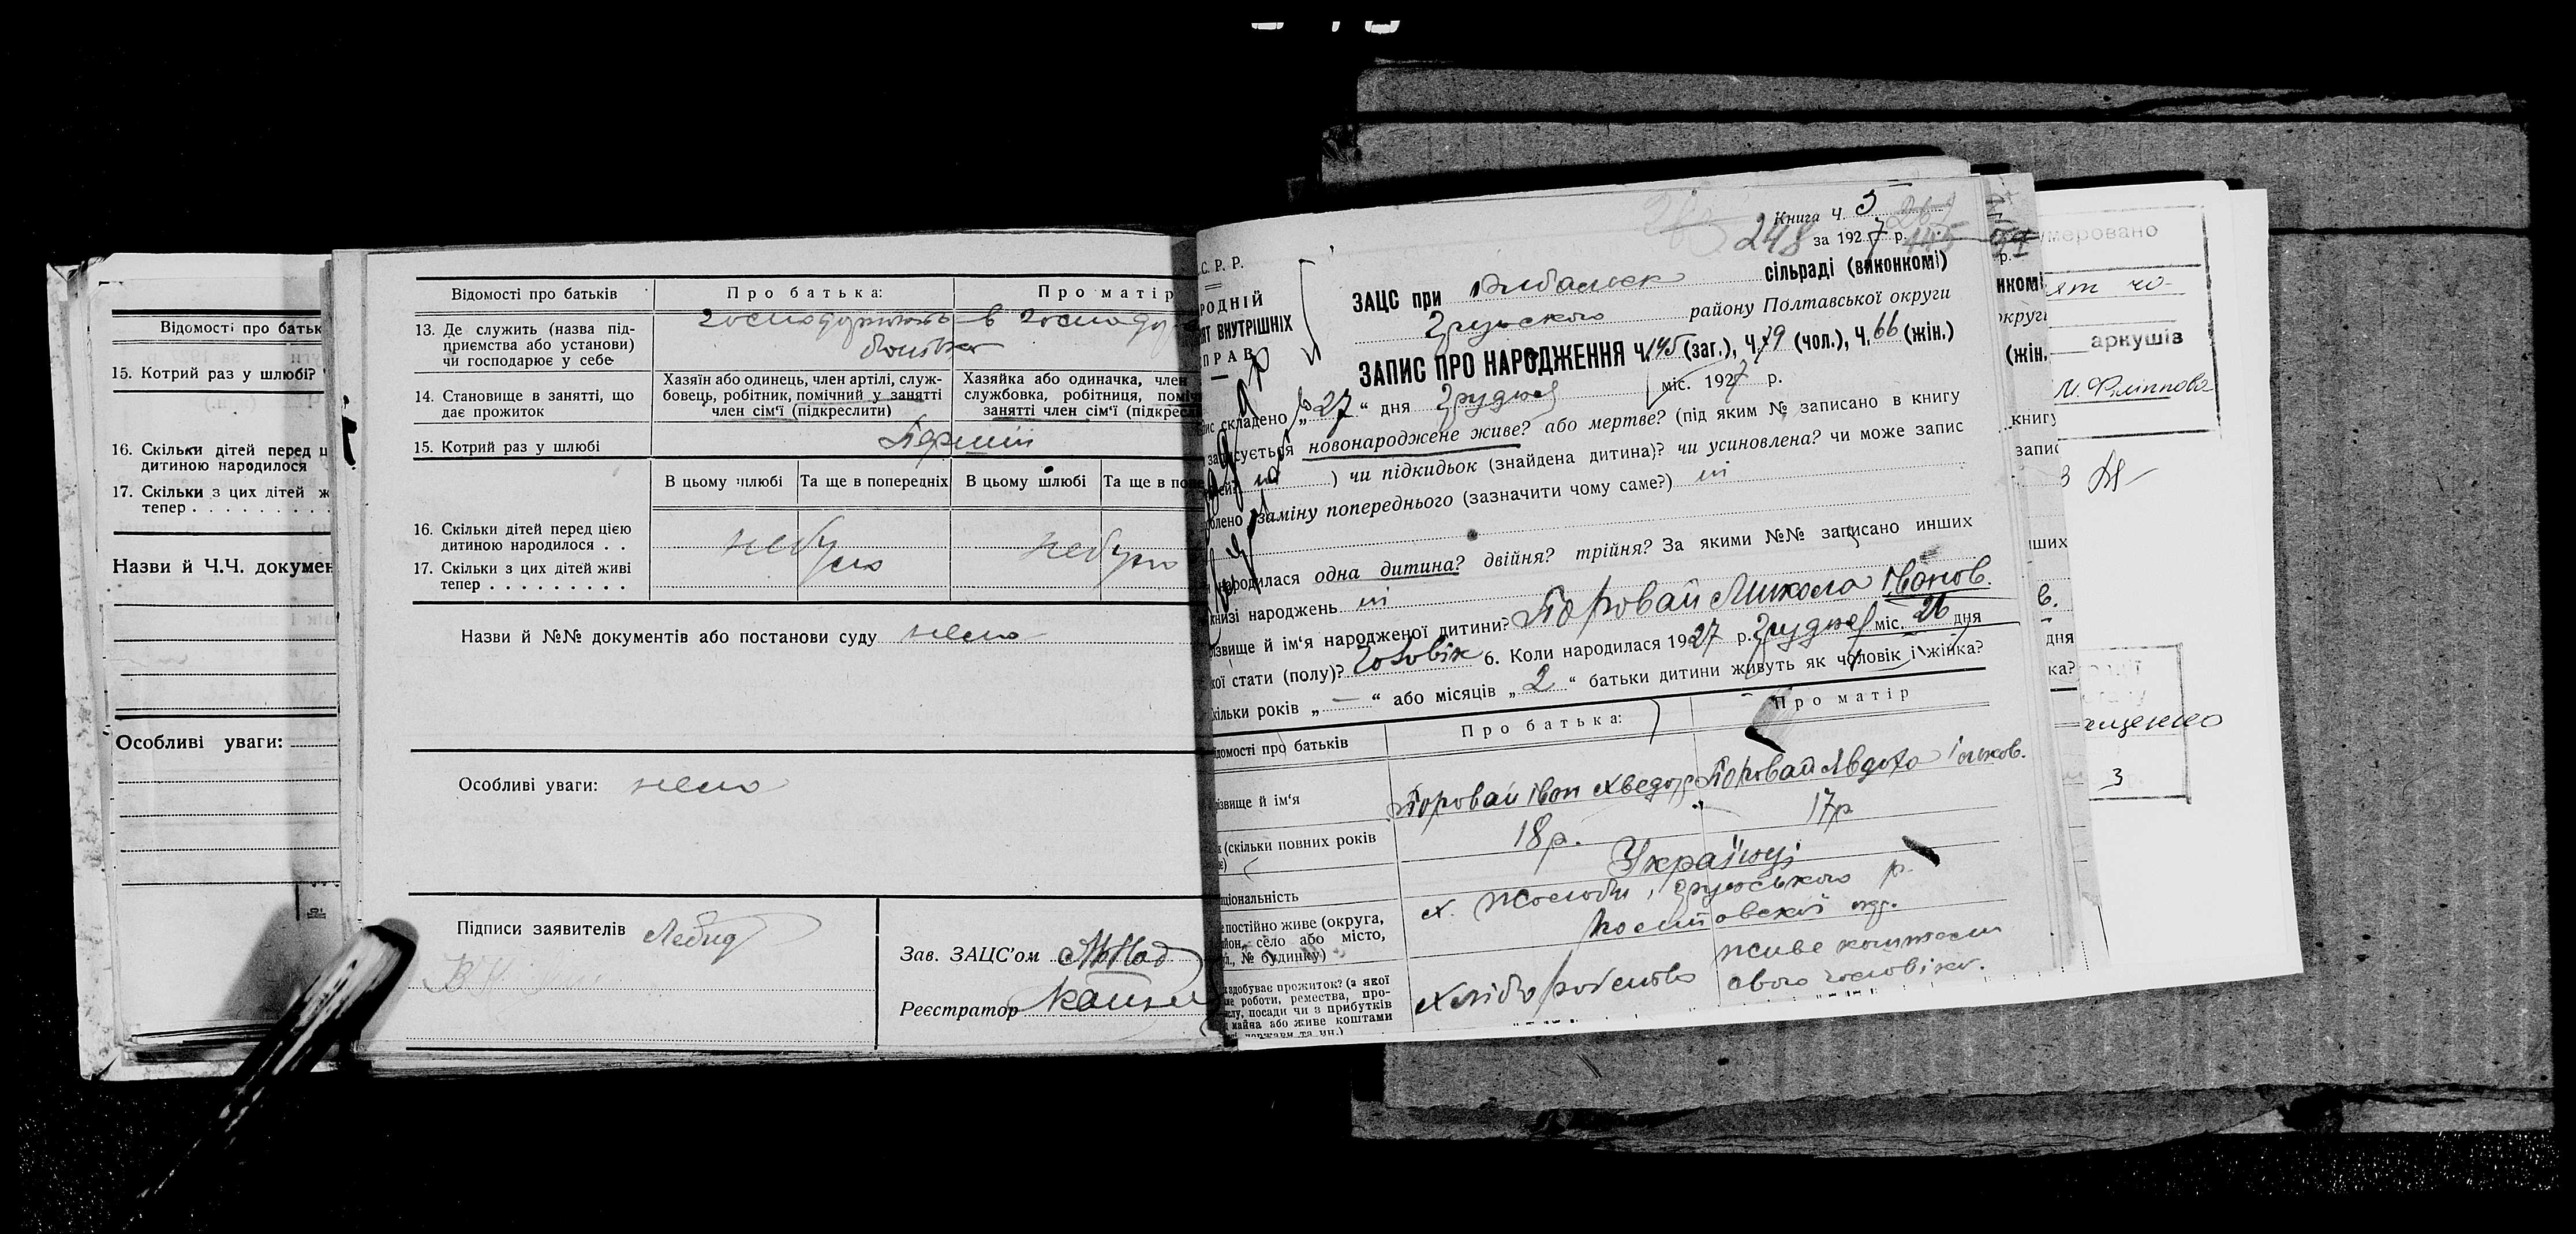 Відомості про батьк
15. Котрий раз у шлюбі?
16. Скільки дітей перед ц
дитиною народилося
17. Скільки з цих дітей ж
тепер
Назви й Ч.Ч. докумен
Особливі уваги:
Відомості про батьків
Про батька:
Про матір
13. Де служить (назва під-
приємства або установи)
чи господарює у себе
14. Становище в занятті, що
дає прожиток
Хазяїн або одинець, член артілі, служ-
бовець, робітник, помічний у занятті
член сім'ї (підкреслити)
Хазяйка або одиначка, член
службовка, робітниця, поміч
занятті член сім'ї (підкресл
15. Котрий раз у шлюбі
Перший
В цьому шлюбі
Та ще в попередніх
В цьому шлюбі
Та ще в попе
16. Скільки дітей перед цією
дитиною народилося
небуло
небуло
17. Скільки з цих дітей живі
тепер
Назви й №№ документів або постанови суду нема
Особливі уваги: нема
Підписи заявителів Лебид
Зав. ЗАЦС'ом
Реєстратор
Книга ч. 5
248 за 1927 р.
С. Р. Р.
РОДНІЙ
ЯТ ВНУТРІШНІХ
ПРАВ
ЗАЦС при сільраді (виконкомі)
Грунського району Полтавської округи
ЗАПИС ПРО НАРОДЖЕННЯ Ч. 145 (заг.), Ч. 79 (чол.), Ч. 66 (жін.)
пис складено „27“ дня грудня міс. 1927 р.
записується новонароджене живе? або мертве? (під яким № записано в книгу
) чи підкидьок (знайдена дитина)? чи усиновлена? чи може запис
облено заміну попереднього (зазначити чому саме?) ні
народилася одна дитина? двійня? трійня? За якими №№ записано инших
книзі народжень ні
ізвище й ім'я народженої дитини? Поровай Микола Іванов.
кої стати (полу)? Чоловік 6. Коли народилася 1927 р. грудня міс. 26 дня
кільки років „—“ або місяців „2“ батьки дитини живуть як чоловік і жінка?
домості про батьків
Про батька:
Про матір
ізвище й ім'я
Поровай Іван Хведор
Поровай Явдоха Ільков.
(скільки повних років
18р.
17р
ціональність
Українці
постійно живе (округа,
йон, село або місто,
№ будинку)
х. Жолоби, Грунського р.
Полтавської окр.
здобуває прожиток? (з якої
роботи, ремества, про-
слу, посади чи з прибутків
майна або живе коштами
держави та ин.)
Хліборобство
живе коштами
свого чоловіка.
нкомі
округи
(жін.
книгу
запис
нших
в.
дня
ка?
умеровано
аркушів
М. Філіппова
3